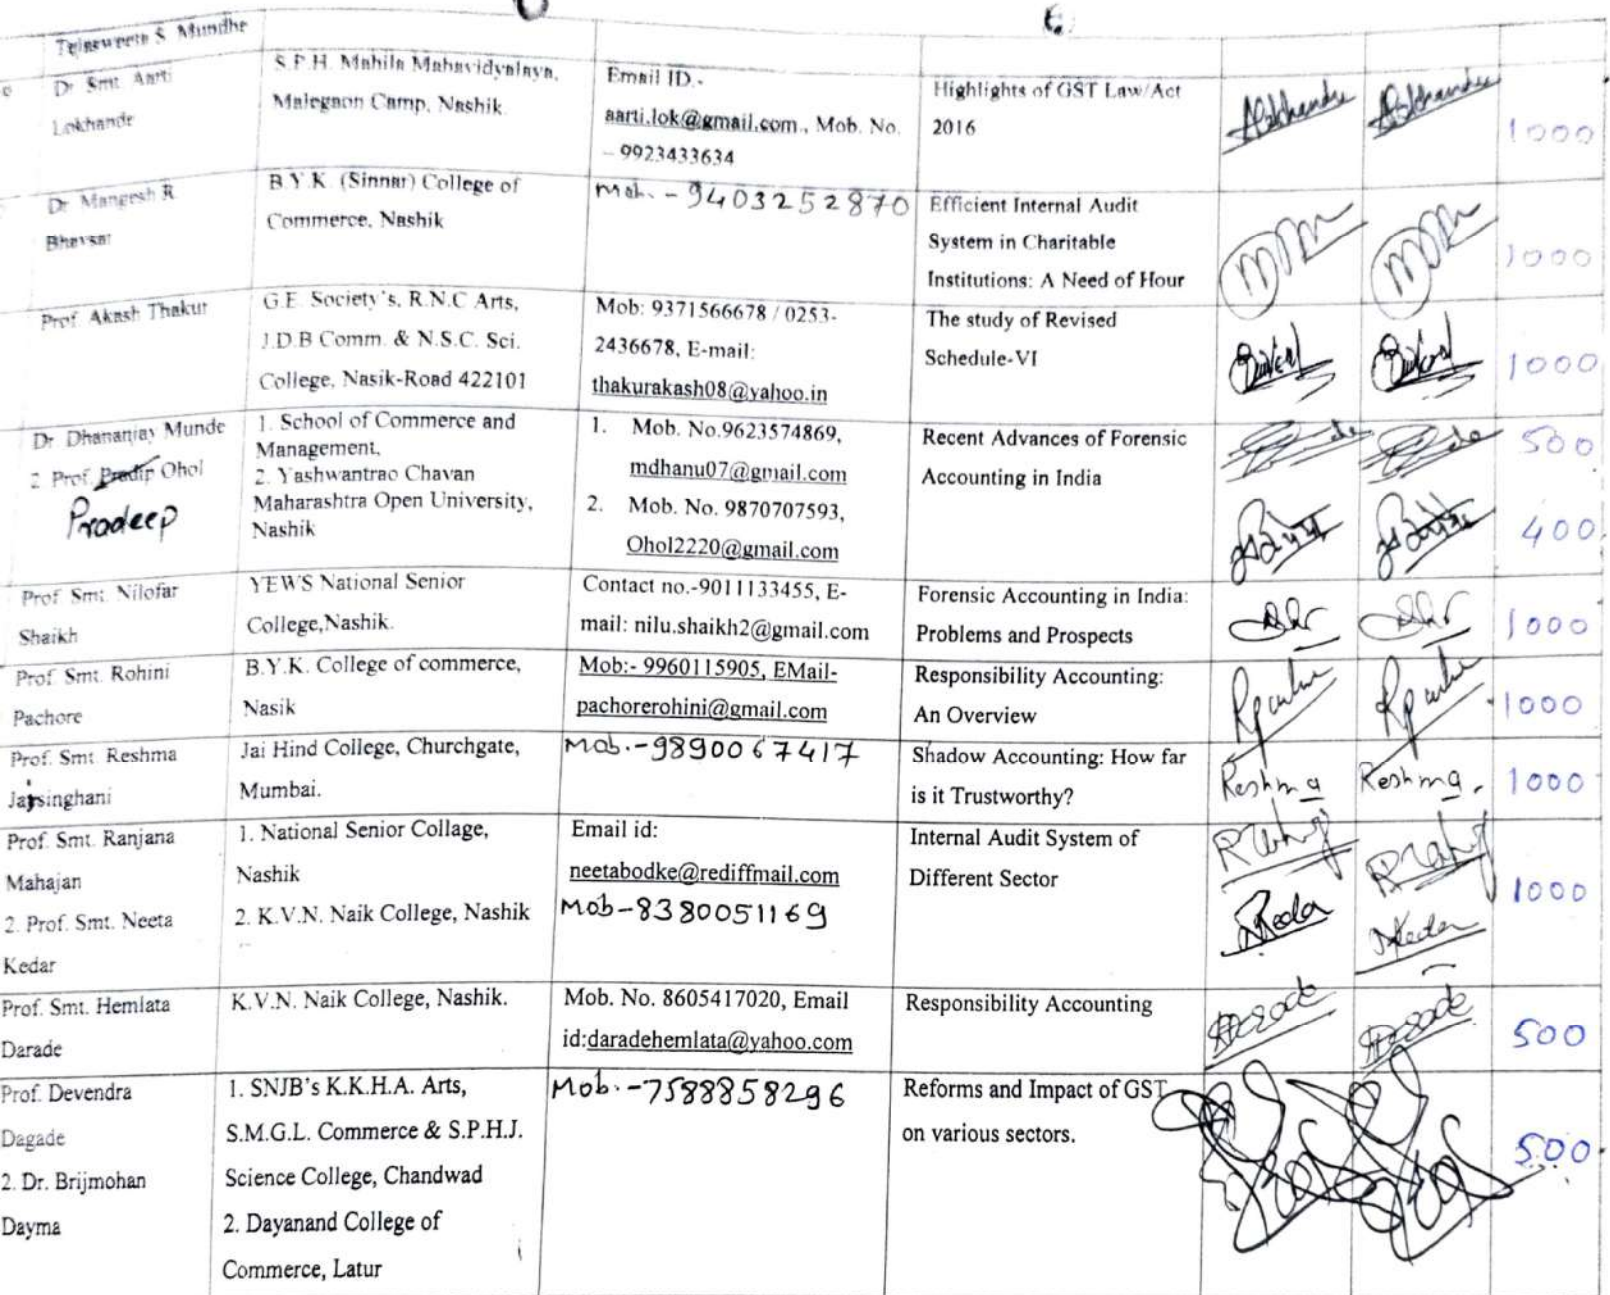 Tejasweeta S. Mundhe
Dr Smt Aarti
Lokhande
S.P.H. Mahila Mahavidyalaya,
Malegaon Camp, Nashik.
Email ID.-
aarti.lok@gmail.com., Mob. No.
– 9923433634
Highlights of GST Law/Act
2016
1000
Dr Mangesh R
Bhavsar
B.Y.K. (Sinnar) College of
Commerce, Nashik
Mob. - 9403252870
Efficient Internal Audit
System in Charitable
Institutions: A Need of Hour
1000
Prof. Akash Thakur
G.E. Society's, R.N.C Arts,
J.D.B Comm. & N.S.C. Sci.
College, Nasik-Road 422101
Mob: 9371566678 / 0253-
2436678, E-mail:
thakurakash08@yahoo.in
The study of Revised
Schedule-VI
1000
Dr Dhananjay Munde
2 Prof. Pradip Ohol
Pradeep
1. School of Commerce and
Management,
2. Yashwantrao Chavan
Maharashtra Open University,
Nashik
1. Mob. No.9623574869,
mdhanu07@gmail.com
2. Mob. No. 9870707593,
Ohol2220@gmail.com
Recent Advances of Forensic
Accounting in India
500
400
Prof Smt. Nilofar
Shaikh
YEWS National Senior
College,Nashik.
Contact no.-9011133455, E-
mail: nilu.shaikh2@gmail.com
Forensic Accounting in India:
Problems and Prospects
1000
Prof Smt. Rohini
Pachore
B.Y.K. College of commerce,
Nasik
Mob:- 9960115905, EMail-
pachorerohini@gmail.com
Responsibility Accounting:
An Overview
1000
Prof. Smt. Reshma
Jaisinghani
Jai Hind College, Churchgate,
Mumbai.
Mob.-9890067417
Shadow Accounting: How far
is it Trustworthy?
Reshma
Reshma.
1000
Prof. Smt. Ranjana
Mahajan
2. Prof. Smt. Neeta
Kedar
1. National Senior Collage,
Nashik
2. K.V.N. Naik College, Nashik
Email id:
neetabodke@rediffmail.com
Mob-8380051169
Internal Audit System of
Different Sector
1000
Prof. Smt. Hemlata
Darade
K.V.N. Naik College, Nashik.
Mob. No. 8605417020, Email
id:daradehemlata@yahoo.com
Responsibility Accounting
500
Prof. Devendra
Dagade
2. Dr. Brijmohan
Dayma
1. SNJB's K.K.H.A. Arts,
S.M.G.L. Commerce & S.P.H.J.
Science College, Chandwad
2. Dayanand College of
Commerce, Latur
Mob.-7588858296
Reforms and Impact of GST
on various sectors.
500